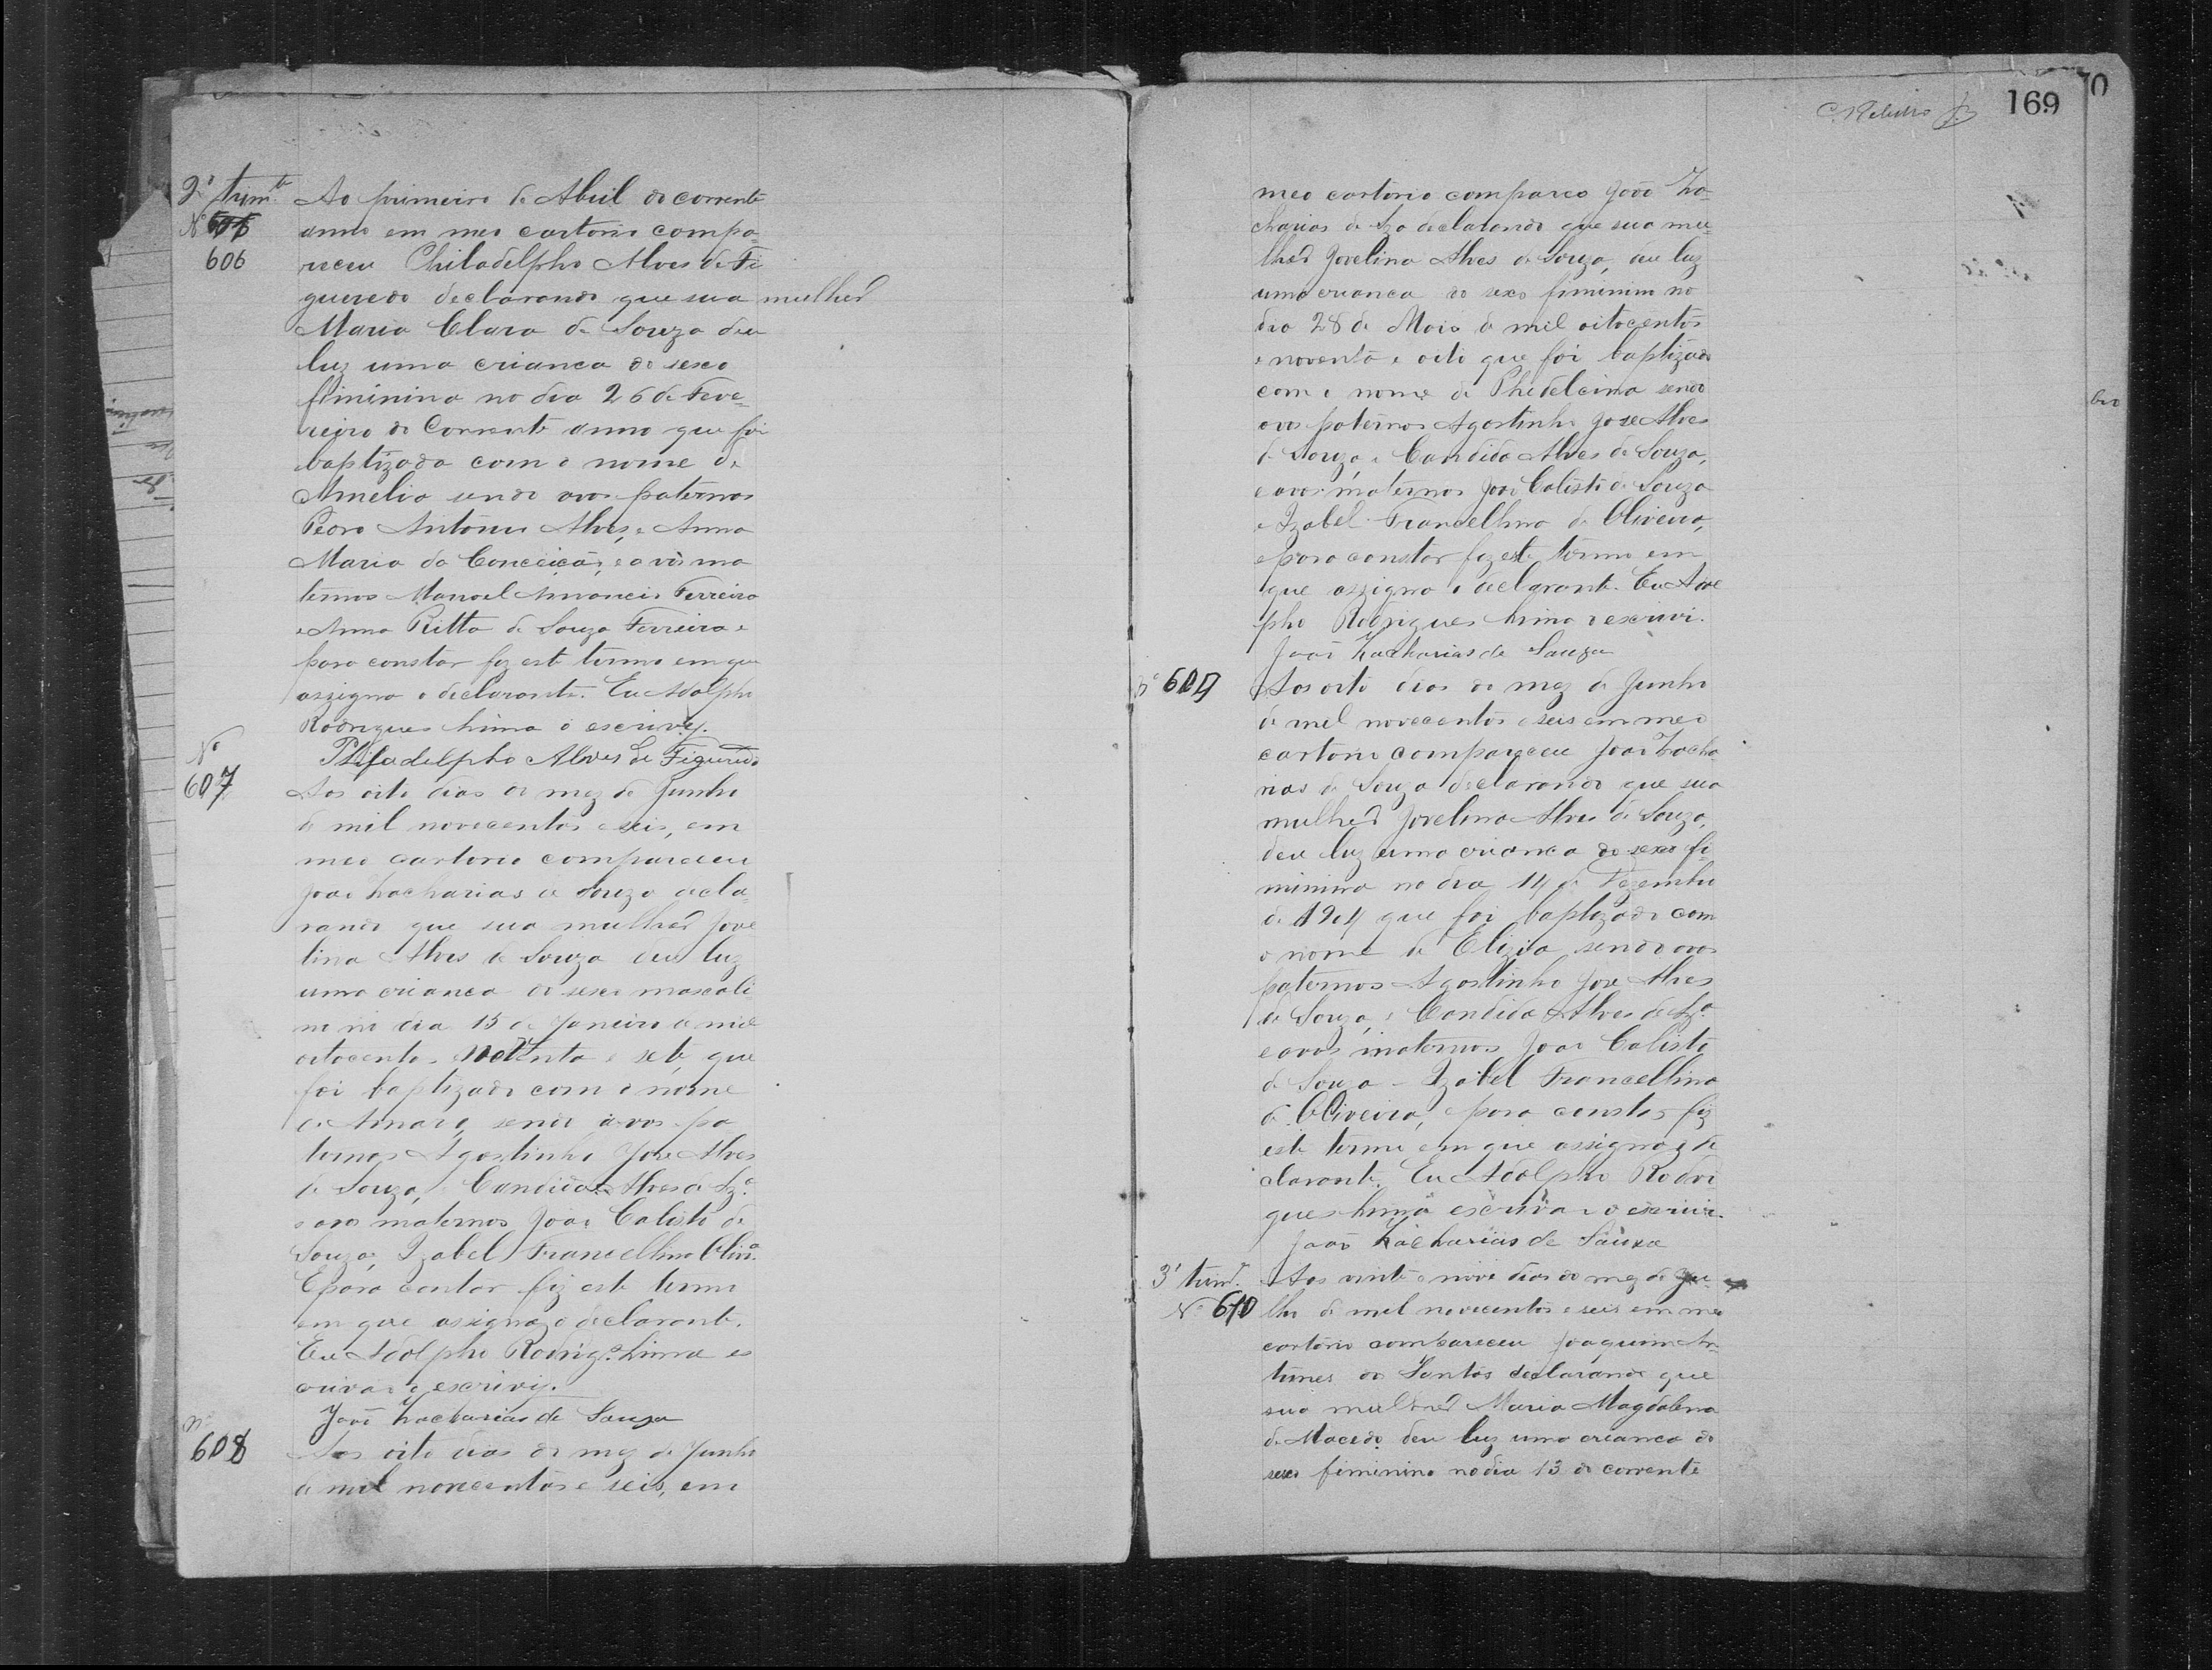 2º trimte
Nº
606
Ao primeiro de Abril do corrente
anno em meo cartorio compa-
receu Philadelpho Alves de Fi
gueredo declarando que sua mulher
Maria Clara de Souza deu
luz uma crianca do sexo
feminino no dia 26 de Feve-
reiro do Corrente anno que foi
baptizada com o nome de
Amelia sendo avos paternos
Pedro Antonio Alves, e Anna
Maria da Conceição, e avòs ma
ternos Manoel Ferreira
e Anna Ritta de Souza Ferreira e
para constar fiz este termo em que
assigna o declarante. Eu Adolpho
Rodrigues Lima o escrivy.
Philadelpho Alves de Figueredo
Nº
607
Aos oito dias do mez de Junho
de mil novecentos e seis, em
meo cartorio compareceu
João Zacharias de Souza decla-
rando que sua mulher Jove
lina Alves de Souza deu luz
uma crianca do sexo masculi
no no dia 15 de Janeiro de mil
oitocentos e noventa e sete, que
foi baptizado com o nome
de Amaro, sendo avos pa
ternos Agostinho Jose Alves
de Souza, Candida Alves de Sza
e avos maternos João Calisto de
Souza, Izabel Francellina Olivra
E para contar fiz este termo
em que asigna o declarante.
Eu Adolpho Rodrigs Lima es
crivão o escrivy.
João Zacharias de Souza
Nº
608
Aos oito dias do mez de Junho
de mil novecentos e seis, em
169
meo cartorio compareo João Za-
charias de Sza declarando que sua mu-
lher Jovelina Alves de Souza, deu luz
uma crianca do sexo fiminino no
dia 28 de Maio de mil oitocentos
e noventa e oito que foi baptizado
com o nome de Phidelcina sendo
avos paternos Agostinho Jose Alves
de Souza, e Candida Alves de Souza,
e avos maternos João Calisto de Souza
e Izabel Francellina de Oliveira,
e para constar fiz este termo em
que assigna o declarante. Eu Adol
pho Rodrigues Lima o escrivi.
João Zacharias de Souza
Nº 609
Aos oito dias do mez de Junho
de mil novecentos e seis em meo
cartorio compareceu João Zacha
rias de Souza declarando que sua
mulher Jovelina Alves de Souza,
deu luz uma crianca do sexo fi-
minino no dia 14 de Dezembro
de 1904 que foi baptizado com
o nome de Elizia sendo avos
paternos Agostinho Jose Alves
de Souza, e Candida Alves de Sza
e avos maternos João Calisto
de Souza e Izabel Francellina
de Oliveira, e para constar fiz
este termo em que assigna o de
clarante. Eu Adolpho Rodri
gues Lima escrivão o escrivi.
João Zacharias de Souza
3º trimt
Nº 610
Aos vinte e nove dias do mez de Ju-
lho de mil novecentos e seis em meo
cartorio compareceu Joaquim An-
tunes dos Santos declarando que
sua mulher Maria Magdalena
de Macedo deu luz uma crianca do
sexo feminino no dia 13 do corrente